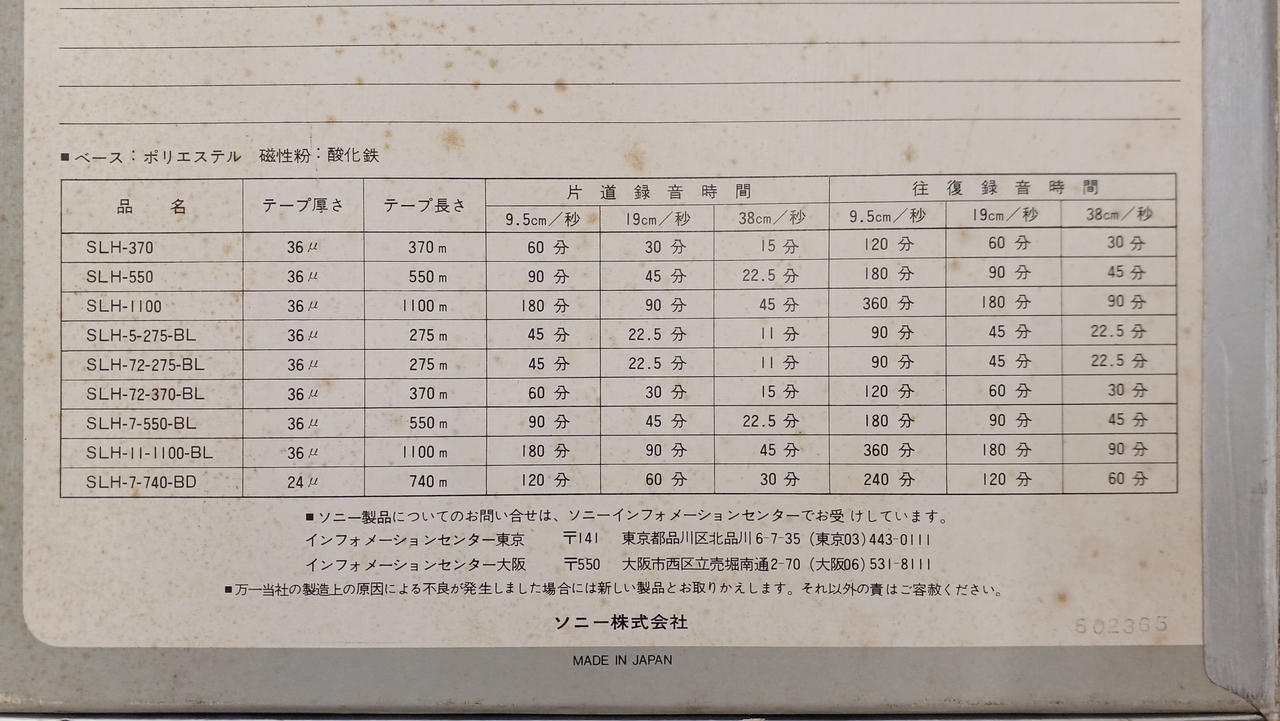 ■ベース：ポリエステル　磁性粉：酸化鉄
品　名　テープ厚さ　テープ長さ　片道録音時間　往復録音時間
9.5cm／秒　19cm／秒　38cm／秒　9.5cm／秒　19cm／秒　38cm／秒
SLH-370　36μ　370m　60分　30分　15分　120分　60分　30分
SLH-550　36μ　550m　90分　45分　22.5分　180分　90分　45分
SLH-1100　36μ　1100m　180分　90分　45分　360分　180分　90分
SLH-5-275-BL　36μ　275m　45分　22.5分　11分　90分　45分　22.5分
SLH-72-275-BL　36μ　275m　45分　22.5分　11分　90分　45分　22.5分
SLH-72-370-BL　36μ　370m　60分　30分　15分　120分　60分　30分
SLH-7-550-BL　36μ　550m　90分　45分　22.5分　180分　90分　45分
SLH-11-1100-BL　36μ　1100m　180分　90分　45分　360分　180分　90分
SLH-7-740-BD　24μ　740m　120分　60分　30分　240分　120分　60分
■ソニー製品についてのお問い合せは、ソニーインフォメーションセンターでお受けしています。
インフォメーションセンター東京　〒141　東京都品川区北品川6-7-35（東京03）443-0111
インフォメーションセンター大阪　〒550　大阪市西区立売堀南通2-70（大阪06）531-8111
■万一当社の製造上の原因による不良が発生しました場合には新しい製品とお取りかえします。それ以外の責はご容赦ください。
ソニー株式会社
502365
MADE IN JAPAN